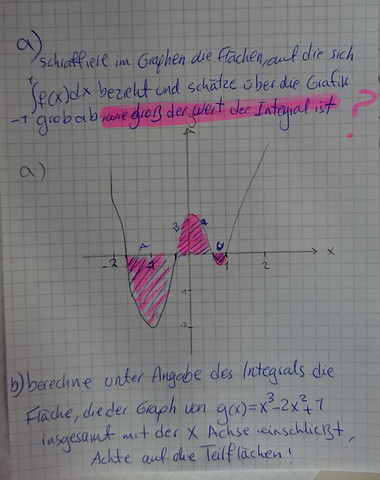 a)
schraffiere im Graphen die Flächen, auf die sich
∫f(x)dx bezieht und schätze über die Grafik
-1
grob ab, wie groß der Wert der Integral ist ?
a)
A B
-2 1 2 x
-1
-2
b) berechne unter Angabe des Integrals die
Fläche, die der Graph von g(x)=x³-2x²+1
insgesamt mit der X Achse einschließt,
Achte auf die Teilflächen!